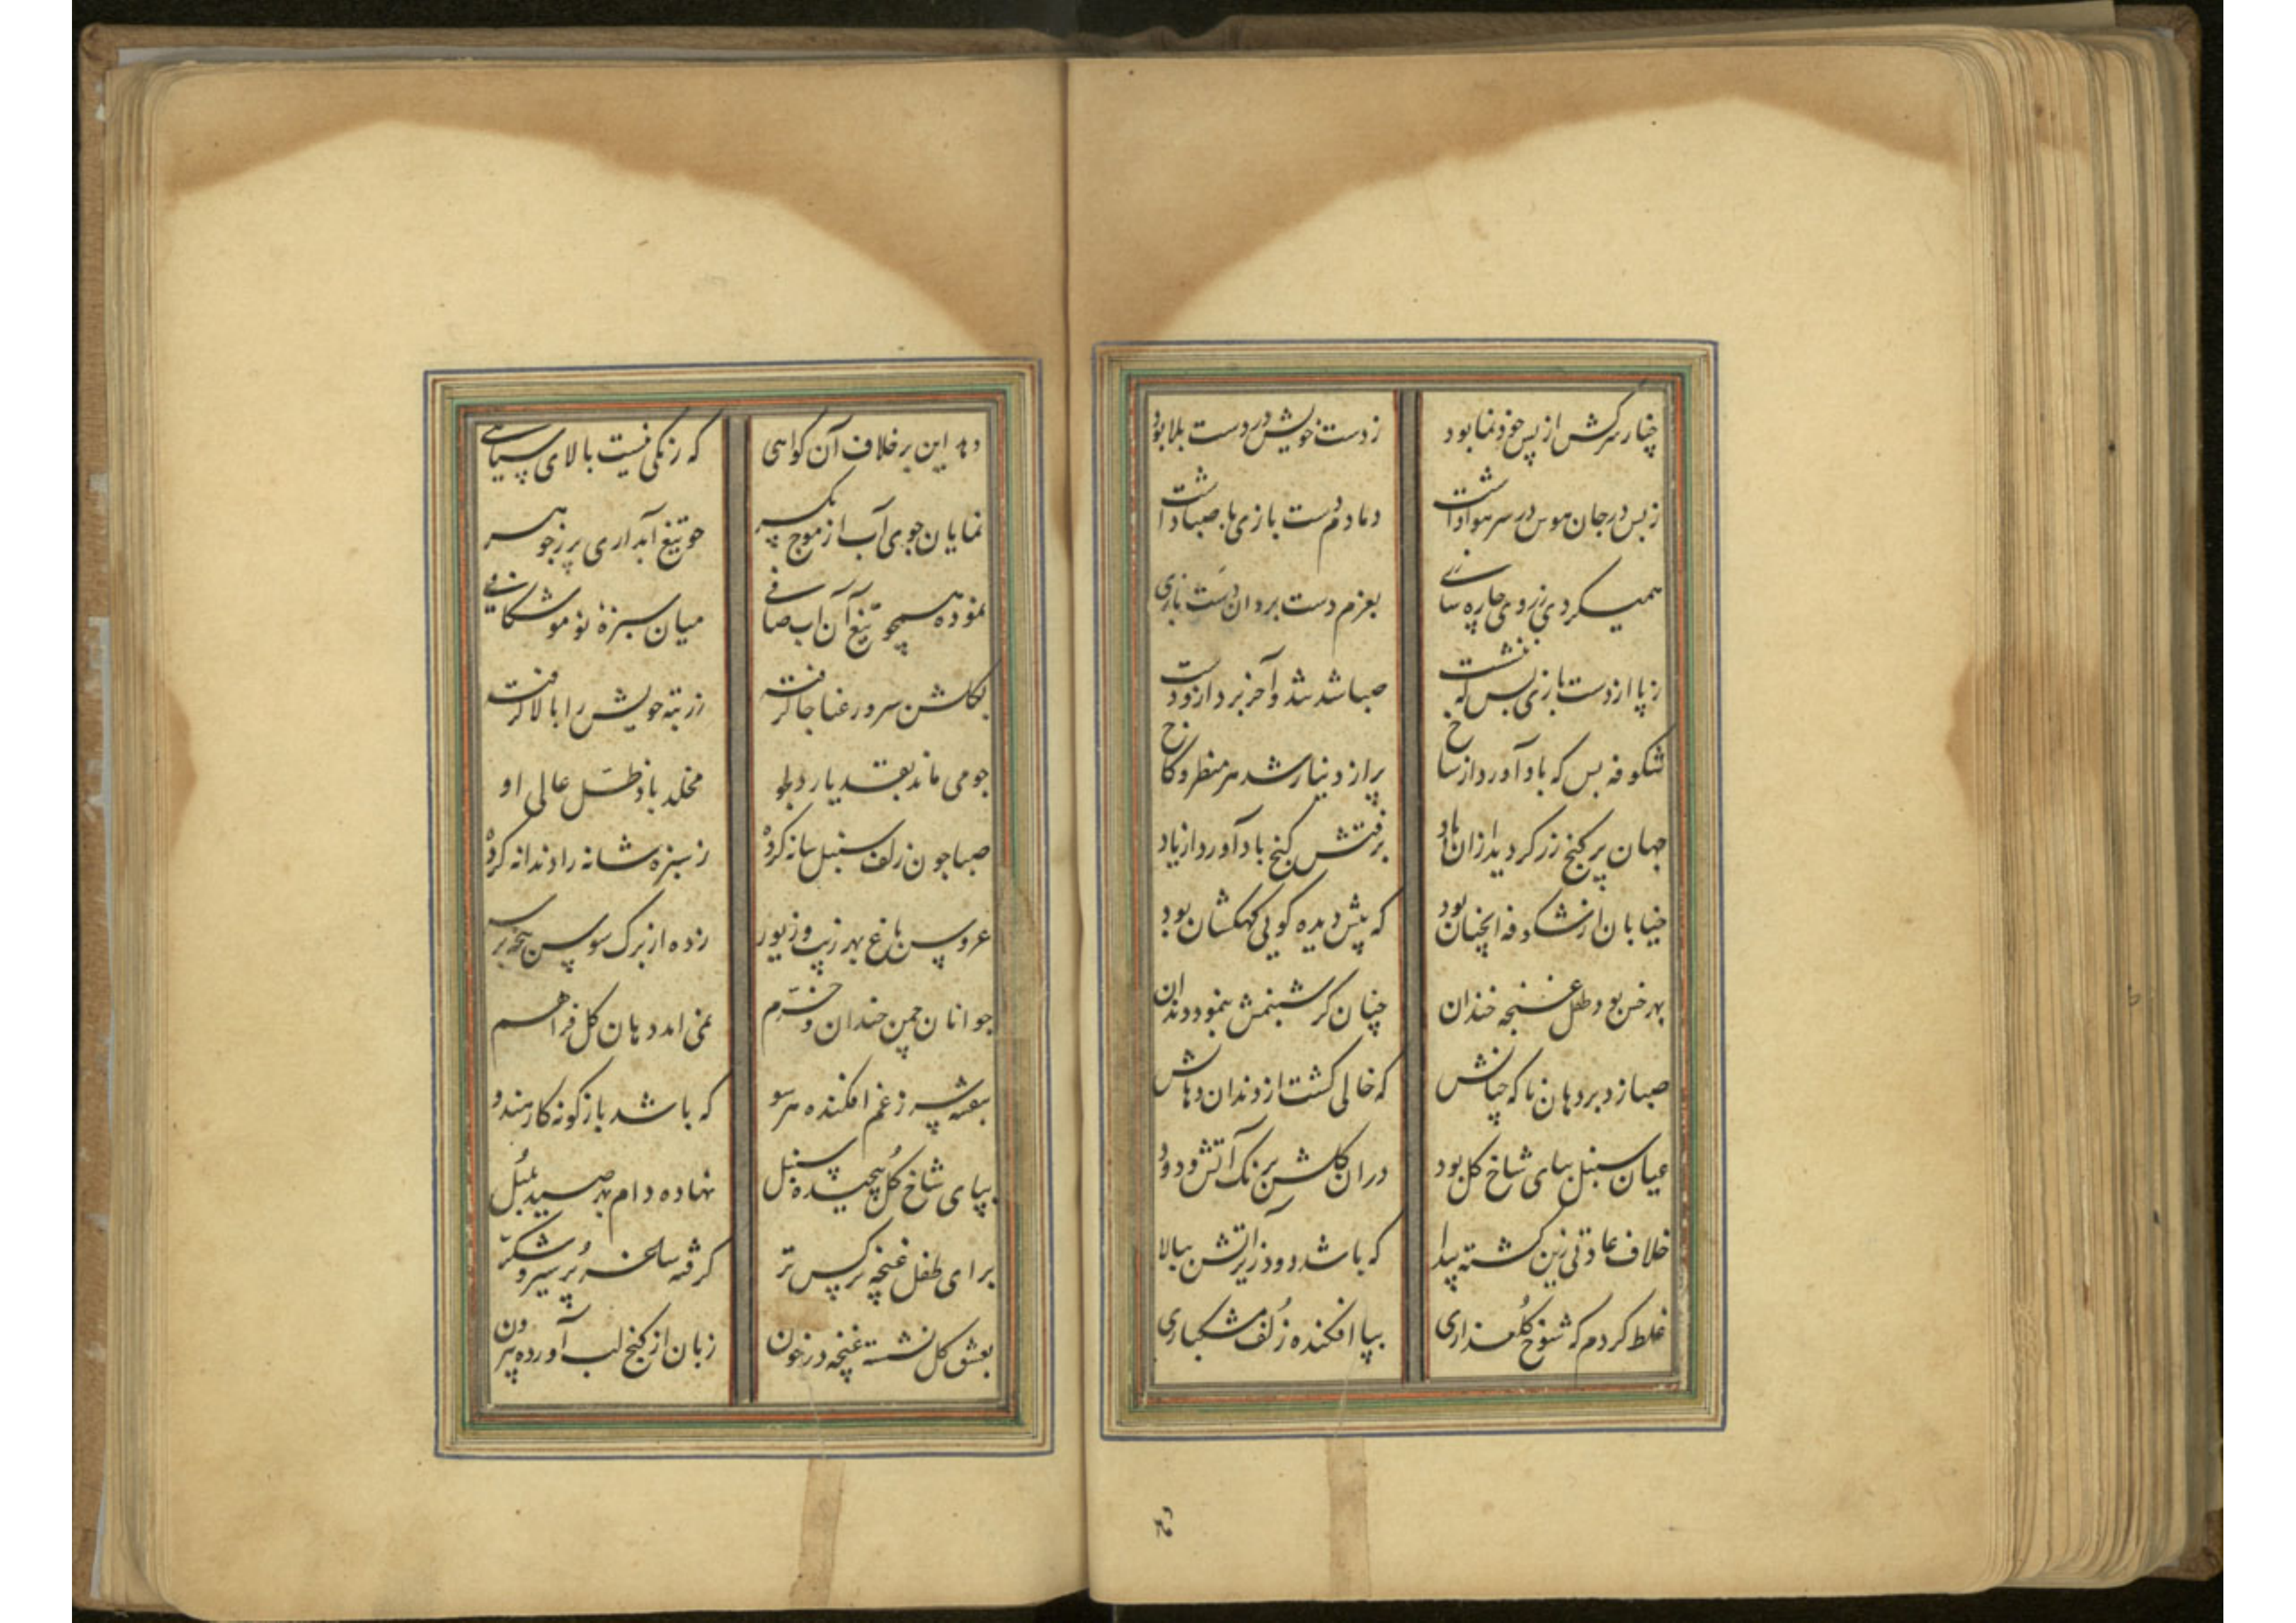 چنار سرکش از پس خود نما بود ز دست خویش در دست بلا بود
ز بس در جان هوس در سر هوا داشت دمادم دست بازی با صبا داشت
همیکردی ز روی چاره سازی بعزم دست برد ان دست بازی
ز پا از دست بازی بس که ننشست صبا شد شد و آخر برد ازو دست
شکوفه بس که باد آورد از شاخ پر از دینار شد هر منظر و کاخ
جهان پر کنج زر کردید ازان باد برفتش کنج باد آورد از یاد
خیابان از شکوفه انچنان بود که پیش دیده کویی کهکشان بود
بهر خس بود طفل غنچه خندان چنان کز شبنمش بنمود دندان
صبا زد بر دهان ناکه چنانش که خالی کشت از دندان دهانش
عیان سنبل بپای شاخ کل بود دران کلشن برنک آتش و دود
خلاف عادتی زین کشته پیدا که باشد دود زیر اتش ببالا
غلط کردم که شوخ کلعذاری بپا افکنده زلف مشکباری
دهد این بر خلاف آن کواهی که رنکی نیست بالای سیاهی
نمایان جوی آب از موج یکسر چو تیغ آبداری پر ز جوهر
نموده همچو تیغ آن اب صافی میان سبزهٔ نو موشکافی
بکلشن سرو رعنا جا کرفته ز رتبه خویش را بالا کرفته
چو می ماند بقد یار دلجو مخلد باد ظل عالی او
صبا چون زلف سنبل شانه کرده ز سبزه شانه را دندانه کرده
عروس باغ بهر زیب و زیور زده از برک سوسن بر
جوانان چمن خندان و خرم نمی امد دهان کل فراهم
بنفشه سر ز غم افکنده هر سو که باشد باژکونه کار هندو
بپای شاخ کل پیچیده سنبل نهاده دام بهر صید بلبل
برای طفل غنچه نرکس تر کرفته ساغر پر شیر و شکر
بعشق کل نشسته غنچه در خون زبان از کنج لب آورده بیرون